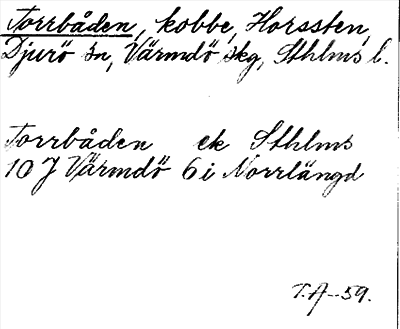 Torrbåden, kobbe, Horssten,
Djurö sn, Värmdö skg, Sthlms l.
Torrbåden ek Sthlms
10 J Värmdö 6 i Norrlängd
T.A-59.